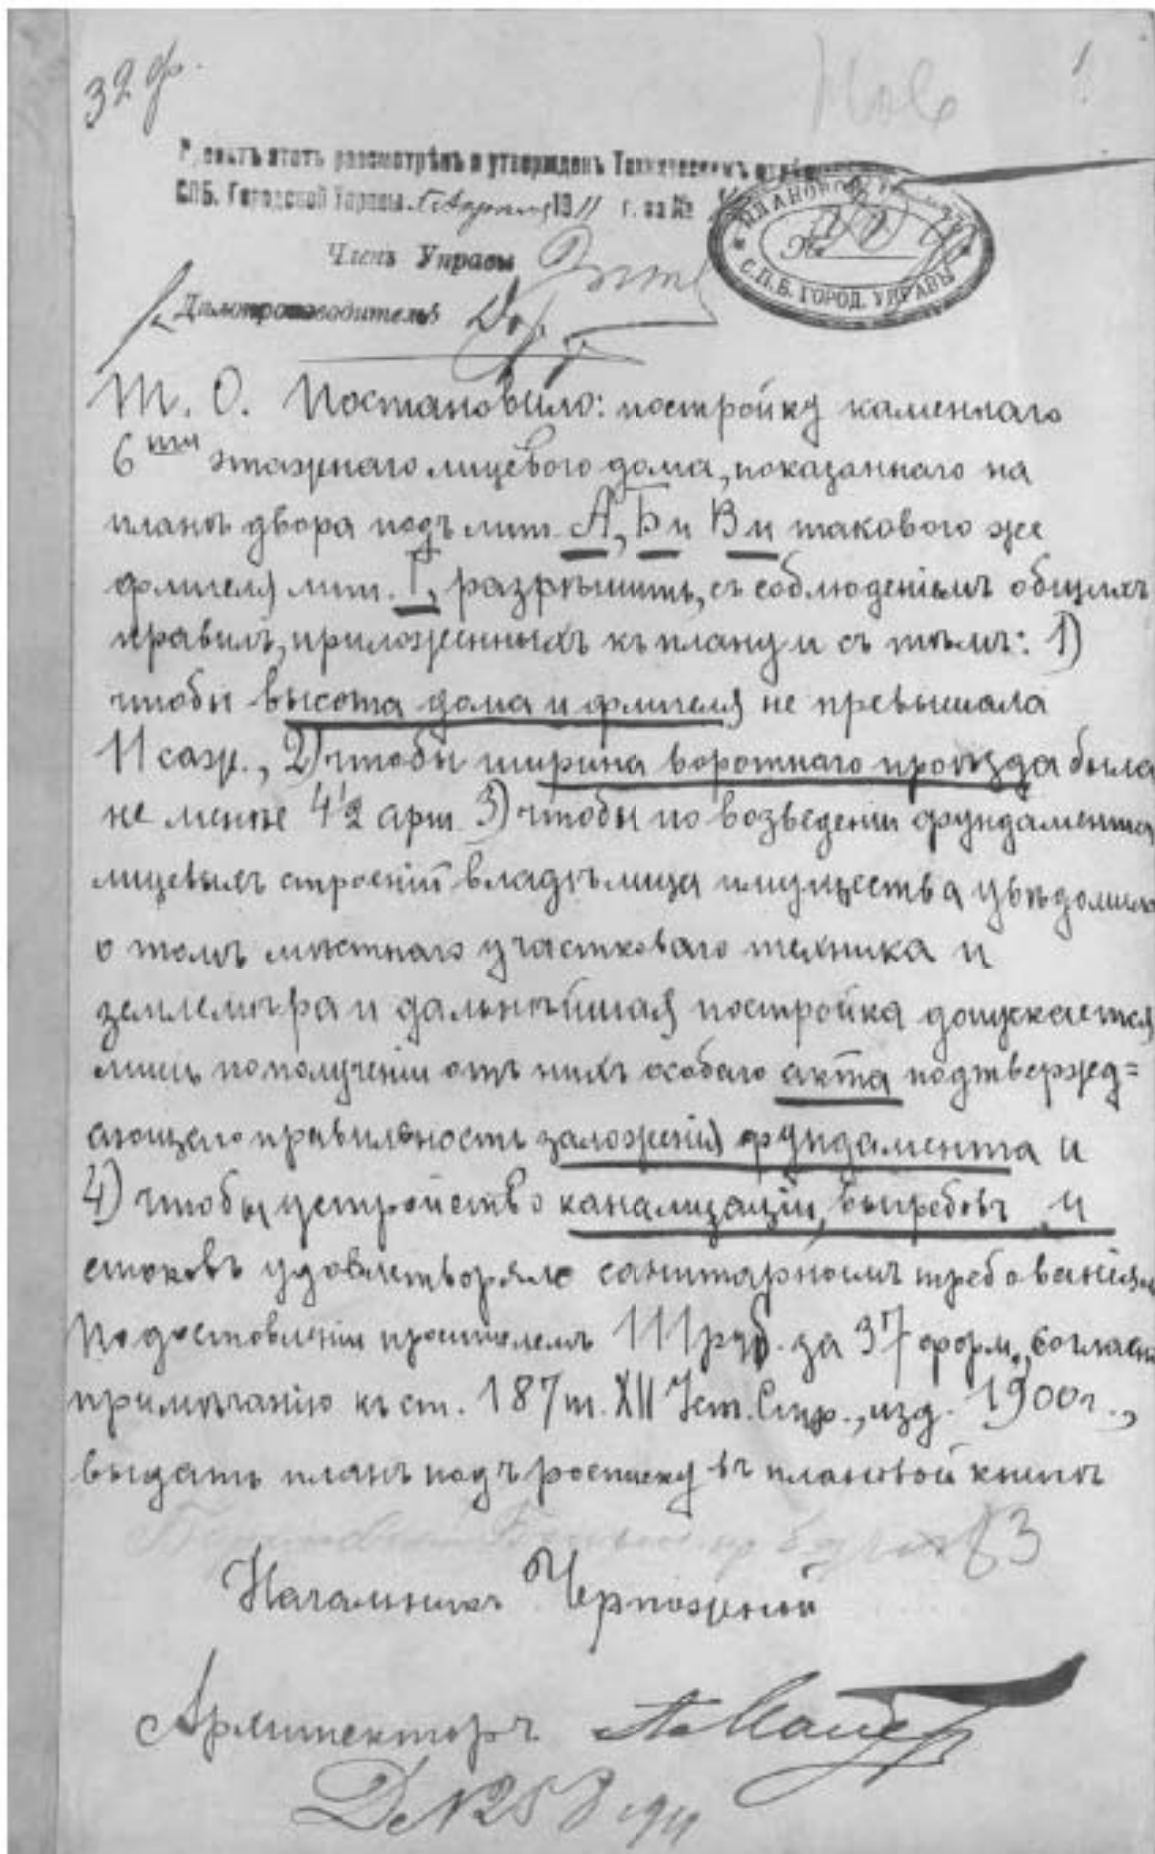 32 ф.
1
Проектъ этотъ разсмотрѣнъ и утвержденъ Техническимъ отдѣл
СПБ. Городской Управы 5 Апрѣля 1911 г. за №
Членъ Управы
Дѣлопроизводитель
ПЛАНОВОЙ
№
С.П.Б. ГОРОД. УПРАВЫ
Т. О. Постановило: постройку каменнаго
6ти этажнаго лицевого дома, показаннаго на
планѣ двора подъ лит. А, Б и В и такового же
флигеля лит. Г, разрѣшить, съ соблюденіемъ общихъ
правилъ, приложенныхъ къ плану и съ тѣмъ: 1)
чтобы высота дома и флигеля не превышала
11 саж., 2) чтобы ширина воротнаго проѣзда была
не менѣе 4 1/2 арш. 3) чтобы по возведеніи фундамента
лицевыхъ строеній владѣлица имущества увѣдомила
о томъ мѣстнаго участковаго техника и
землемѣра и дальнѣйшая постройка допускается
лишь по полученіи отъ нихъ особаго акта подтвержд=
ающаго правильность заложенія фундамента и
4) чтобы устройство канализаціи, выгребовъ и
стоковъ удовлетворяло санитарнымъ требованіям
По доставленіи просителемъ 111 руб. за 37 форм., согласн
примѣчанію къ ст. 187 т. XII Уст. Стр., изд. 1900 г.,
выдать планъ подъ росписку въ плановой книгѣ
83
Начальникъ Чернложеній
Архитекторъ
Д. № 258 1911